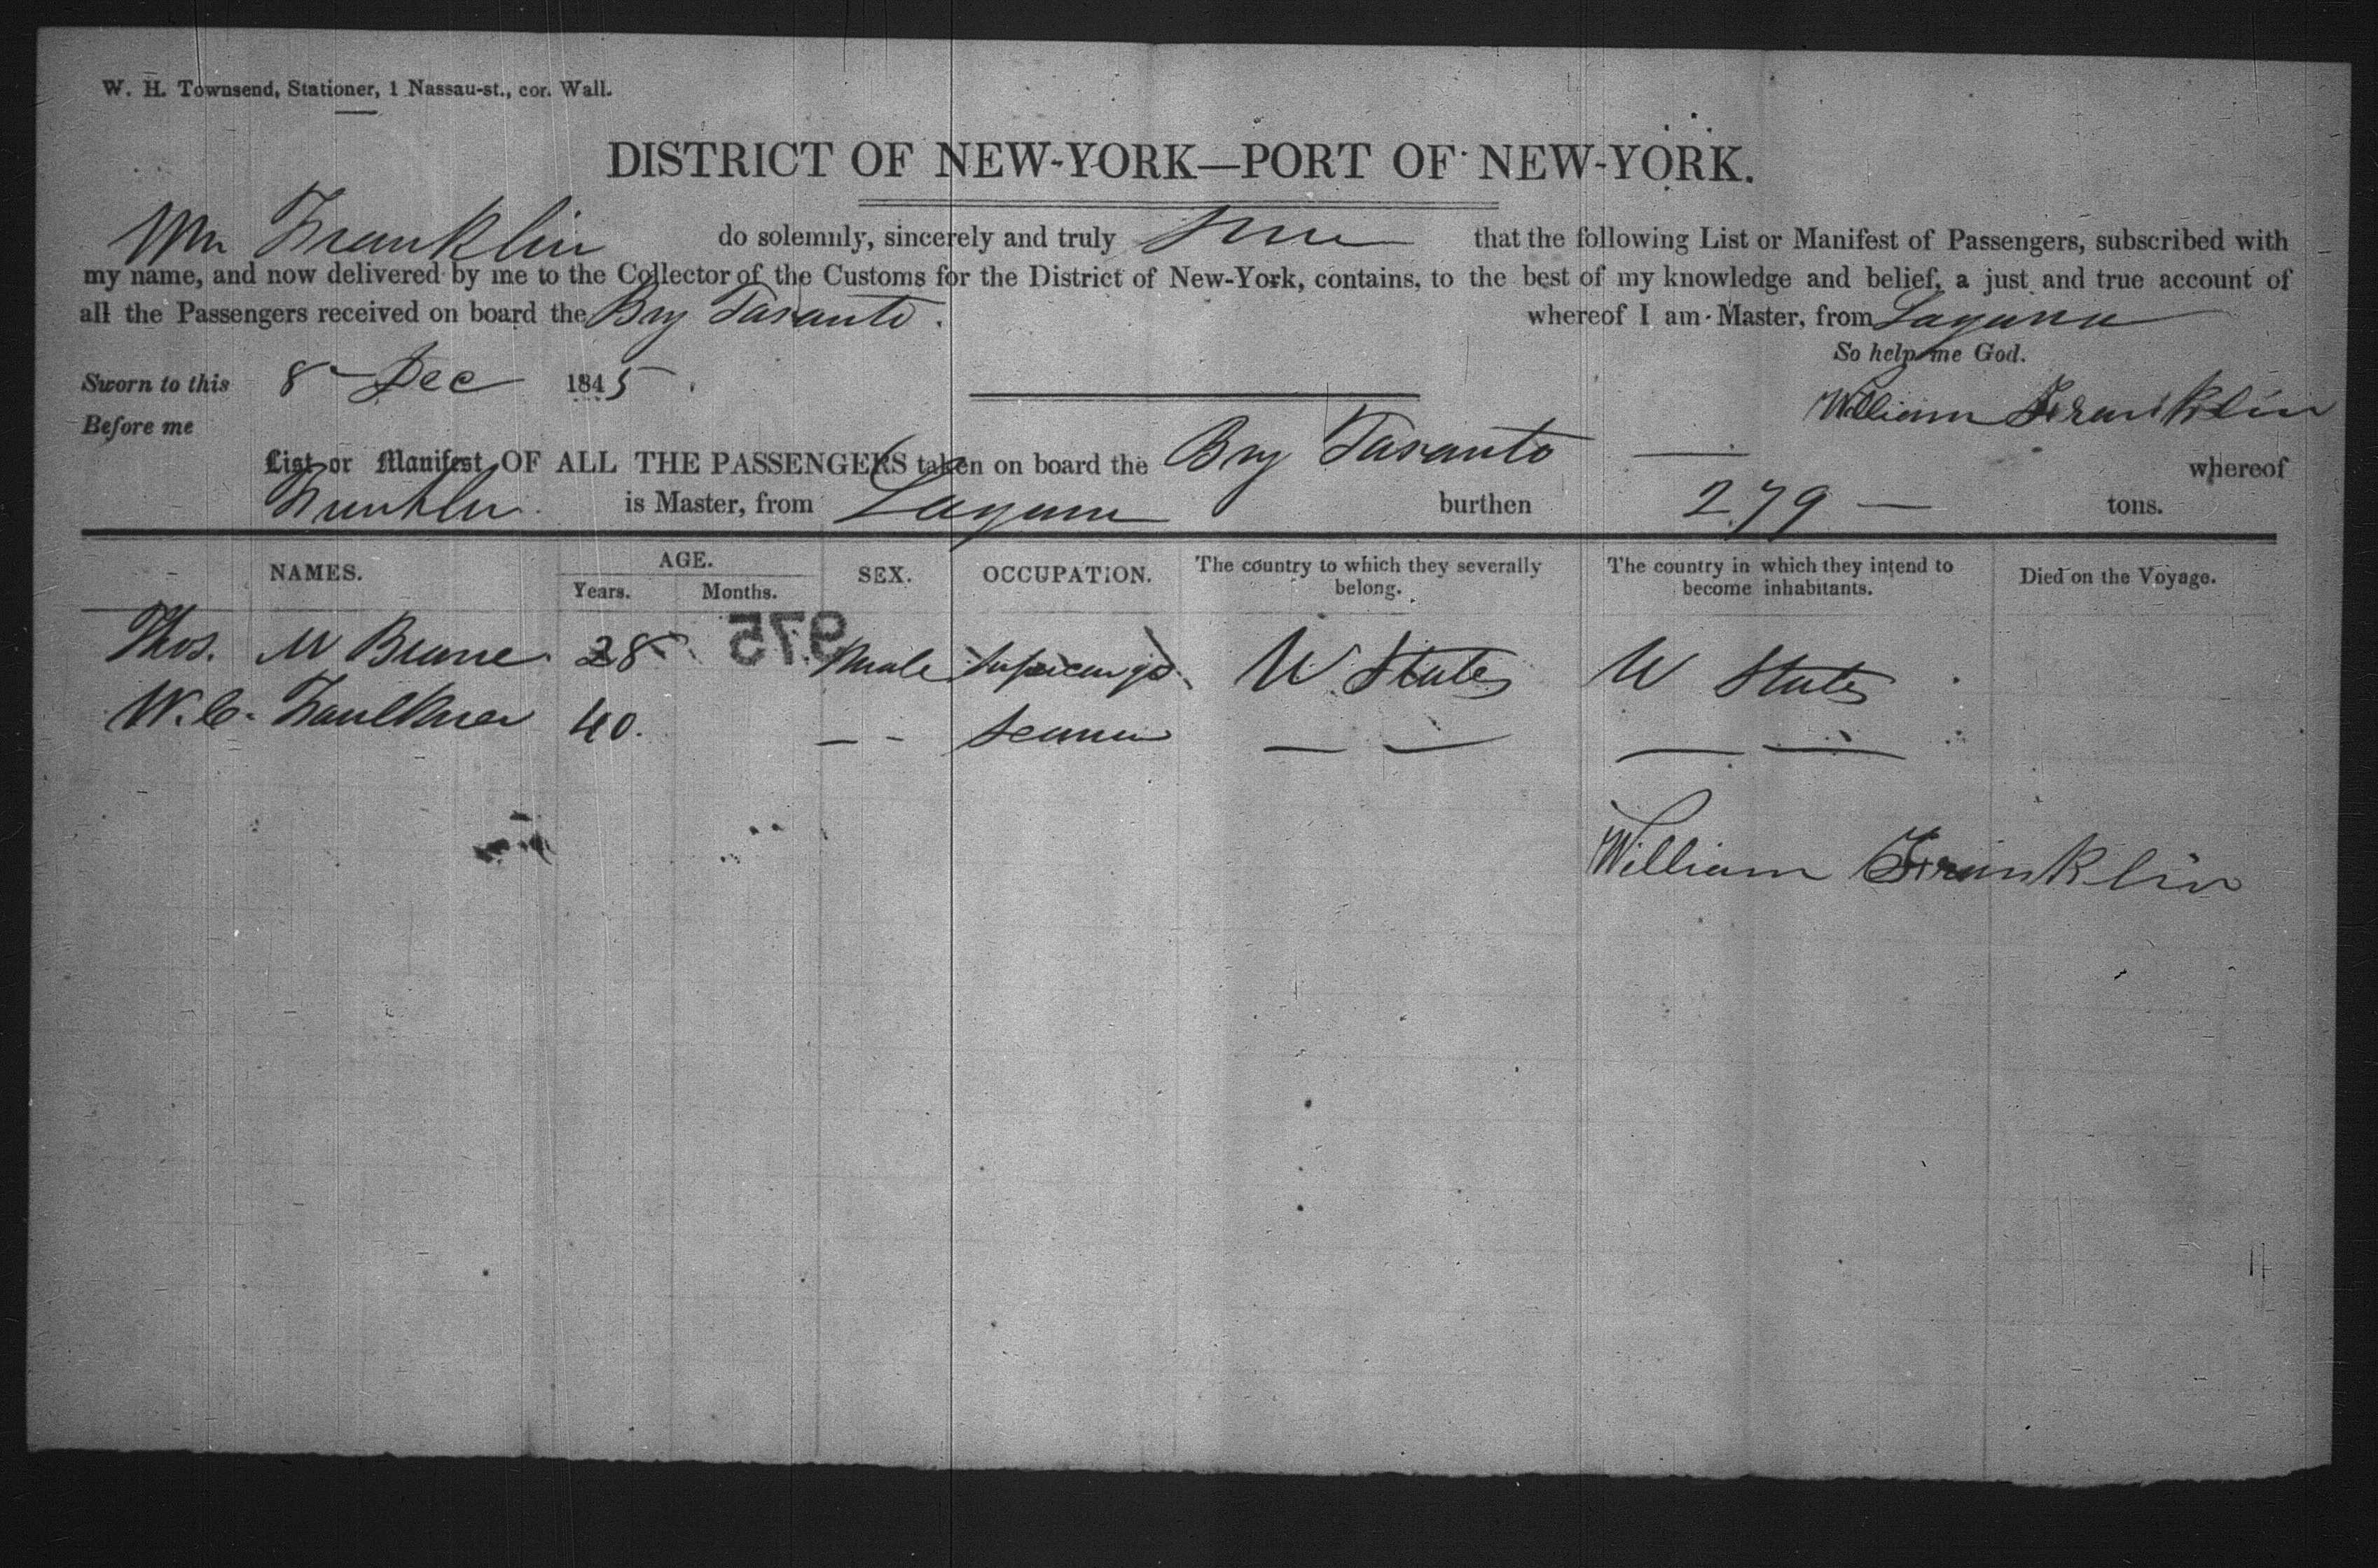 W. H. Townsend, Stationer, 1 Nassau-st., cor. Wall.
DISTRICT OF NEW-YORK—PORT OF NEW-YORK.
Wm Franklin do solemnly, sincerely and truly that the following List or Manifest of Passengers, subscribed with
my name, and now delivered by me to the Collector of the Customs for the District of New-York, contains, to the best of my knowledge and belief, a just and true account of
all the Passengers received on board the Brig Taranto. whereof I am Master, from Laguna
So help me God.
Sworn to this 8 Dec 1845.
William Franklin
Before me
List or Manifest OF ALL THE PASSENGERS taken on board the Brig Taranto whereof
Franklin is Master, from Laguna burthen 279 — tons.
NAMES. AGE. SEX. OCCUPATION. The country to which they severally belong. The country in which they intend to become inhabitants. Died on the Voyage.
Years. Months.
975
Thos. M 28 Male U States U States
W. C. Faulkner 40. — - Seaman — — — —
William Franklin